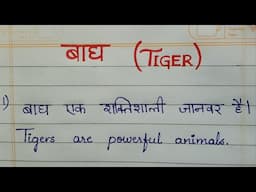 बाघ (TIGER)
1) बाघ एक शक्तिशाली जानवर है।
Tigers are powerful animals.